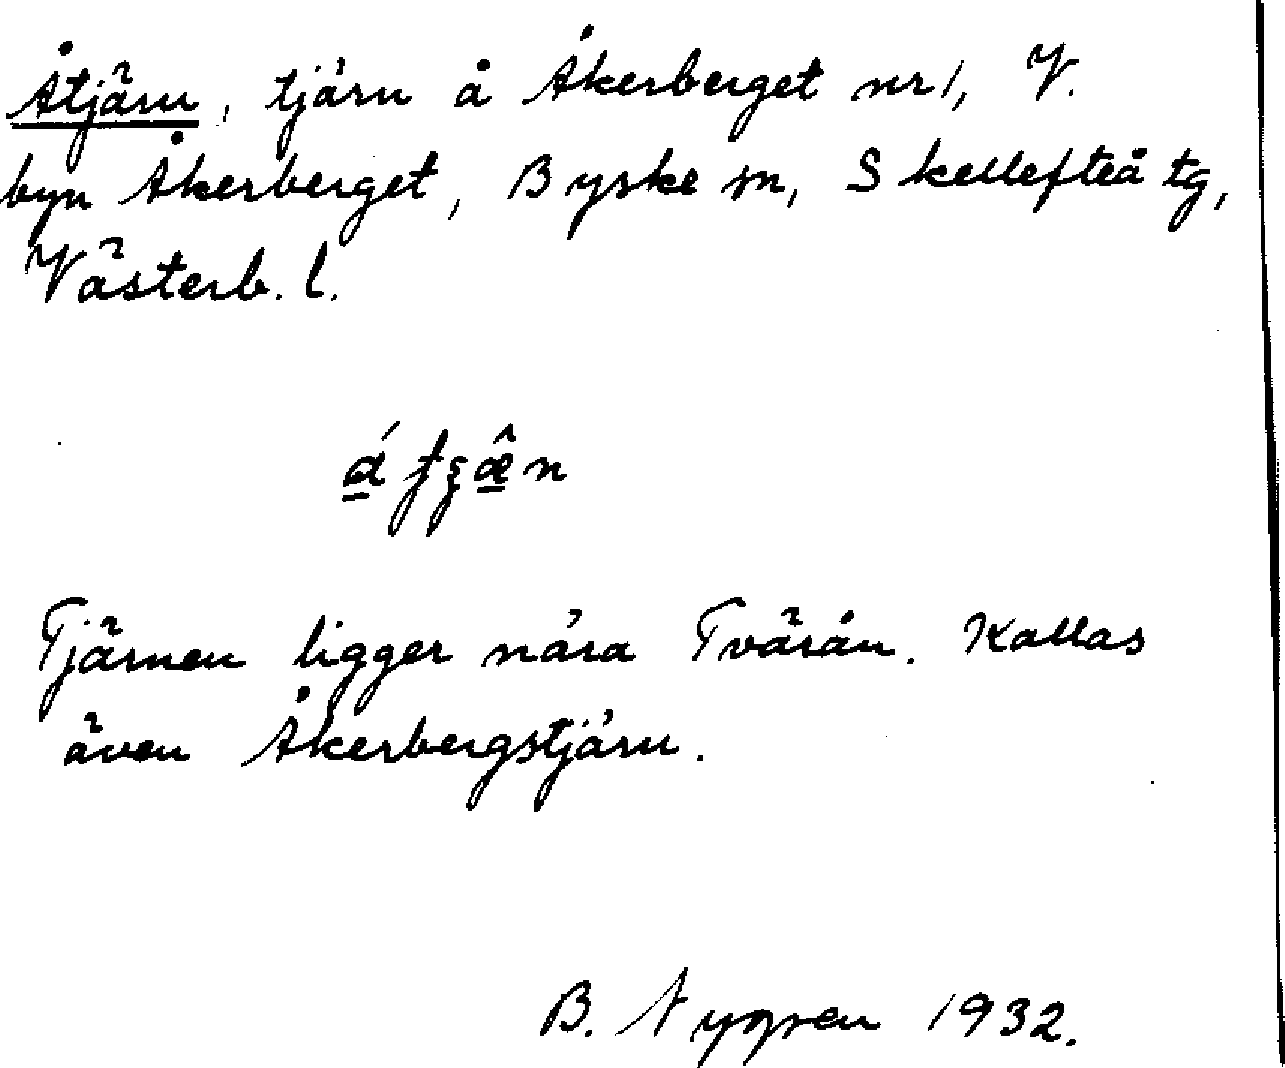 Åtjärn, tjärn å Åkerberget nr 1, V.
byn Åkerberget, Byske sn, Skellefteå tg,
Västerb. l.
Tjärnen ligger nära Tvärån. Kallas
även Åkerbergstjärn.
B. Nygren 1932.